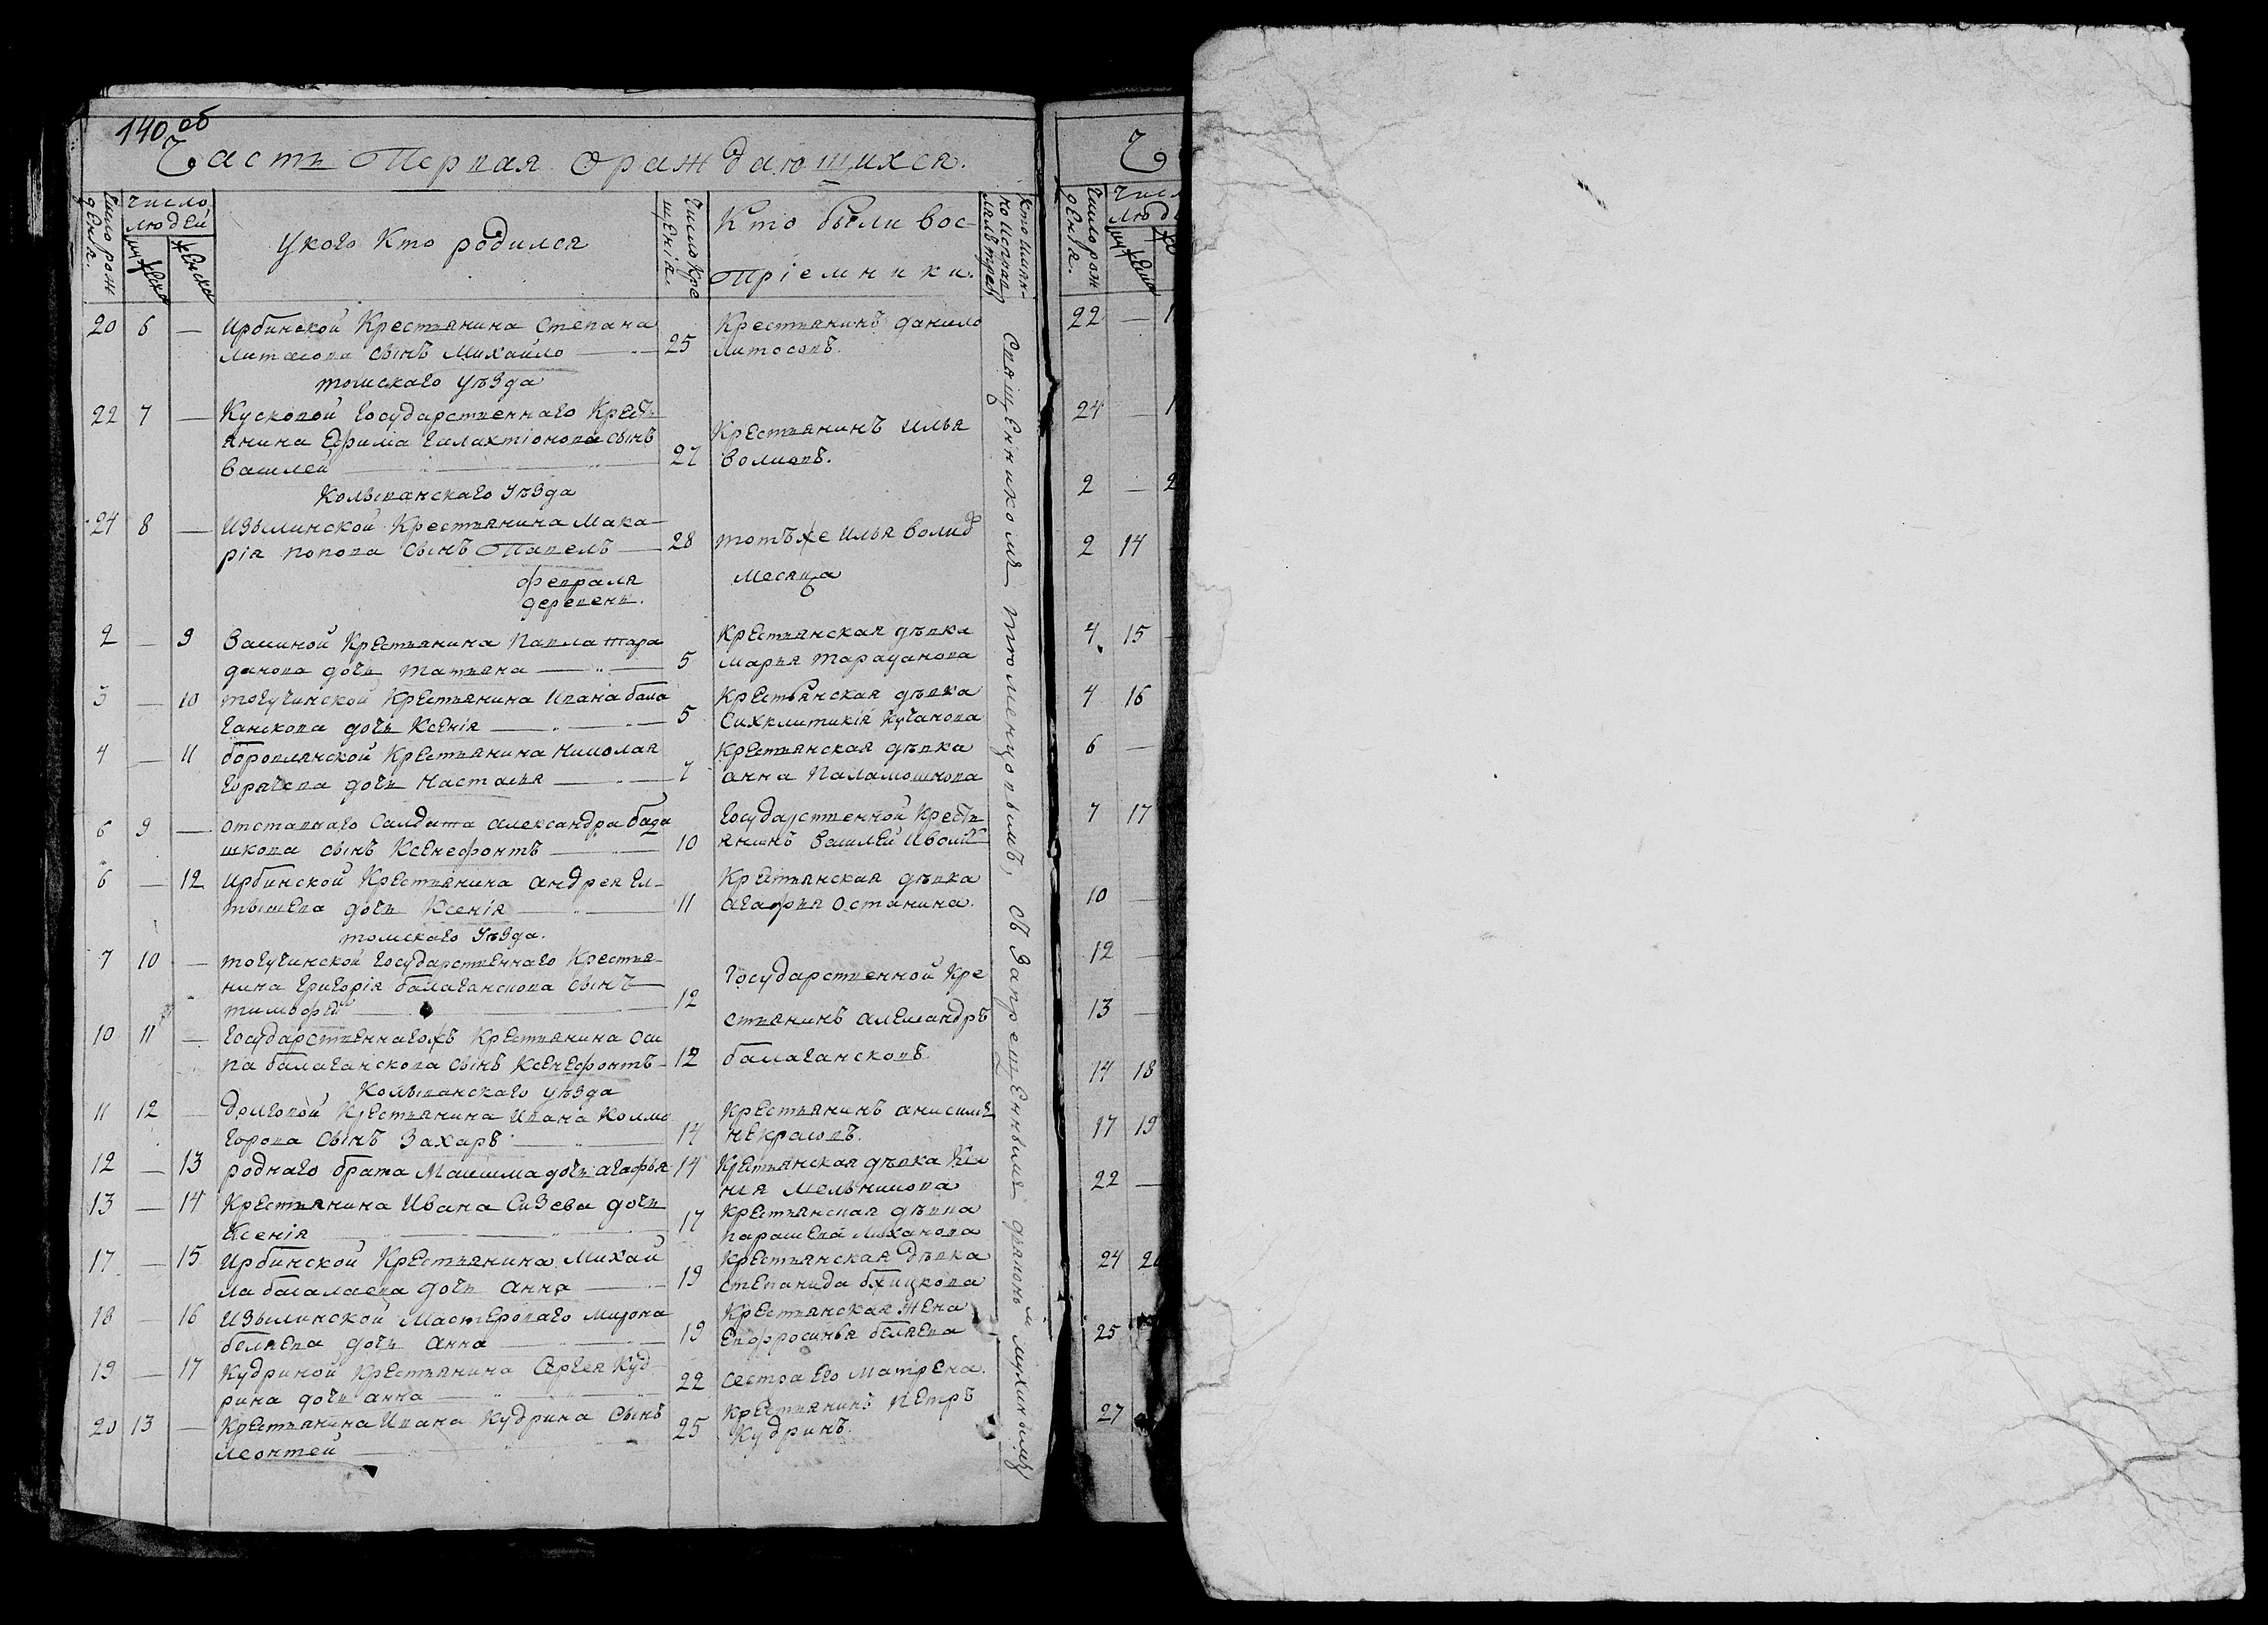 140 об
Часть Первая ораждающихся.
Число рож
денія.
число
людей
мужеска
женска
укого Кто родился
Число Кре
щенія
Кто были вос-
пріемники.
20 6 — Ирбинской Крестьянина Степана
сынъ Михайло — 25
Крестьянинъ данило
томскаго уѣзда
22 7 — Кусковой Государственнаго Кресть
янина Ефима Галахтіонова сынъ
Василей — 27
Крестьянинъ Илья
Колыванскаго уѣзда
24 8 — Изылинской Крестьянина Мака-
рія попова сынъ Павелъ — 28
тотъже Илья
февраля
месяца
деревень.
2 — 9 Вашиной Крестьянина Павла тара
данова дочь татьяна — 5
Крестьянская дѣвка
марья
3 — 10 тогучинской Крестьянина Ивана бала
ганскова дочь Ксенія — 5
Крестьянская дѣвка
Кучанова
4 — 11 боровлянской Крестьянина Николая
Горячева дочь Настасья — 7
Крестьянская дѣвка
анна Паламошнова
6 9 — отставнаго Салдата александра
шкова сынъ Ксенефонтъ — 10
Государственной Кресть
янинъ Василей
6 — 12 Ирбинской Крестьянина андрея Ел-
дочь Ксенія — 11
Крестьянская дѣвка
агафья останина.
томскаго Уѣзда.
7 10 — тогучинской Государственнаго Крестья-
нина Григорія балаганскова сынъ
тимофей — 12
Государственной Кре
стьянинъ александръ
10 11 — Государственнагожъ Крестьянина оси
па балаганскова сынъ Ксенефонтъ — 12
балагансковъ
Колыванскаго уѣзда
11 12 — долговой Крестьянина Ивана Колмо
горова сынъ Захаръ — 14
Крестьянинъ анисимъ
Некрасовъ.
12 — 13 роднаго брата Максима дочь агафья 14
Крестьянская дѣвка Ксе
нія Мельникова
13 — 14 Крестьянина Ивана Сизева дочь
Ксенія — 17
Крестьянская дѣвка
17 — 15 Ирбинской Крестьянина Михай
ла дочь анна — 19
Крестьянская дѣвка
степанида
18 — 16 Изылинской Мастероваго Мирона
беляева дочь анна — 19
Крестьянская жена
Евфросинья беляева
19 — 17 Кудриной Крестьянина Сергея Куд
рина дочь анна — 22
сестра его Матрена.
20 13 — Крестьянина Ивана Кудрина сынъ
леонтей — 25
Крестьянинъ Петръ
Кудринъ.
Священникомъ тюменцовымъ, съ Запрещеннымъ дьякономъ мухинымъ
Число рож
денія.
22 —
24 —
2 —
2 14
4 15
4 16
6 —
7 17
10 —
12 —
13 —
14 18
17 19
22 —
24
25
27